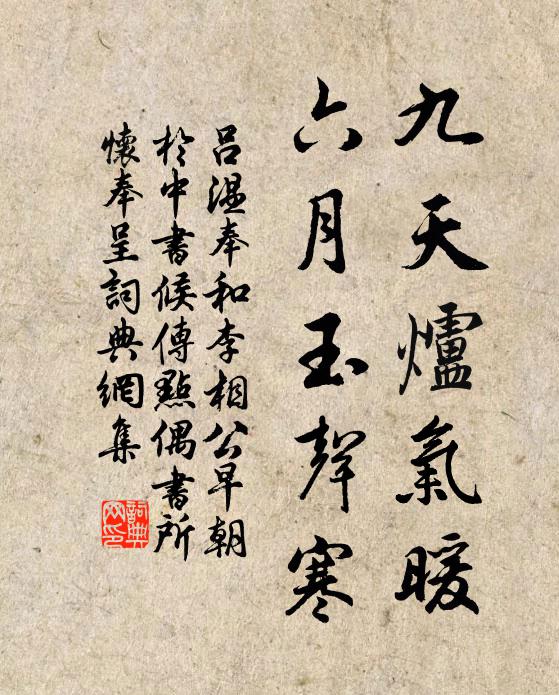 九天爐氣暖
六月玉聲寒
呂溫奉和李相公早朝
於中書候傳點偶書所
懷奉呈詞典網集
詞典網印